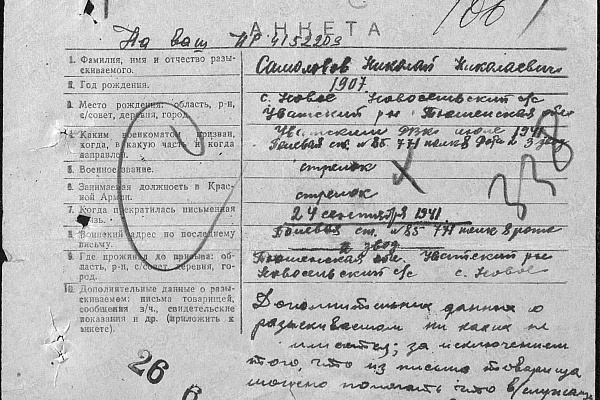 106
АНКЕТА
На ваш № 4152209
1. Фамилия, имя и отчество разыскиваемого.
Самоловов Николай Николаевич
2. Год рождения.
1907
3. Место рождения: область, р-н, с/совет, деревня, город.
с. Новое Новосельский с/с
Уватский р-н Тюменская обл
4. Каким военкоматом призван, когда, в какую часть и когда направлен.
Уватским РВК июле 1941
Полевая ст. № 85 771 полка рота 2 3 взв
5. Военное звание.
стрелок
6. Занимаемая должность в Красной Армии.
стрелок
7. Когда прекратилась письменная связь.
24 сентября 1941
8. Воинский адрес по последнему письму.
Полевая ст. № 85 771 полк 8 рота
взвод
9. Где проживал до призыва: область, р-н, с/совет, деревня, город.
Тюменская обл. Уватский р-н
Новосельский с/с с. Новое
10. Дополнительные данные о разыскиваемом: письма товарищей, сообщения в/ч., свидетельские показания и др. (приложить к анкете).
Дополнительных данных о
разыскиваемом ни каких не
имеется; за исключением
того, что из письма товарища
можно понять что в/служащ
26